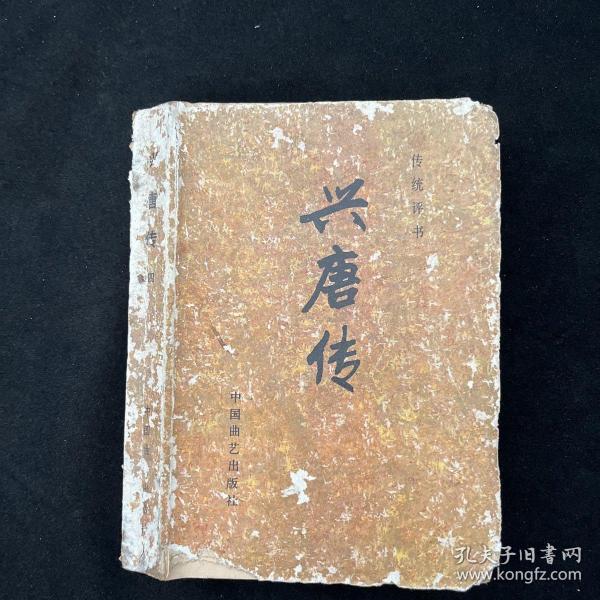 传统评书
兴唐传
中国曲艺出版社
唐传 四
中国
孔夫子旧書网
www.kongfz.com